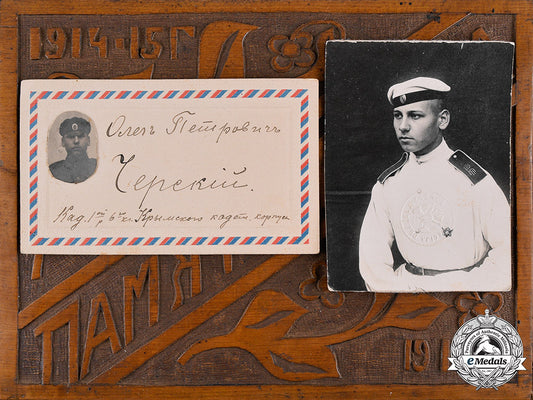 1914-15 Г
Олегъ Петровичъ
Черскій.
Кад. 1ой р 6го кл. Крымского кадет. корпуса
ПАМЯТ
ПАМЯ
19
eMedals